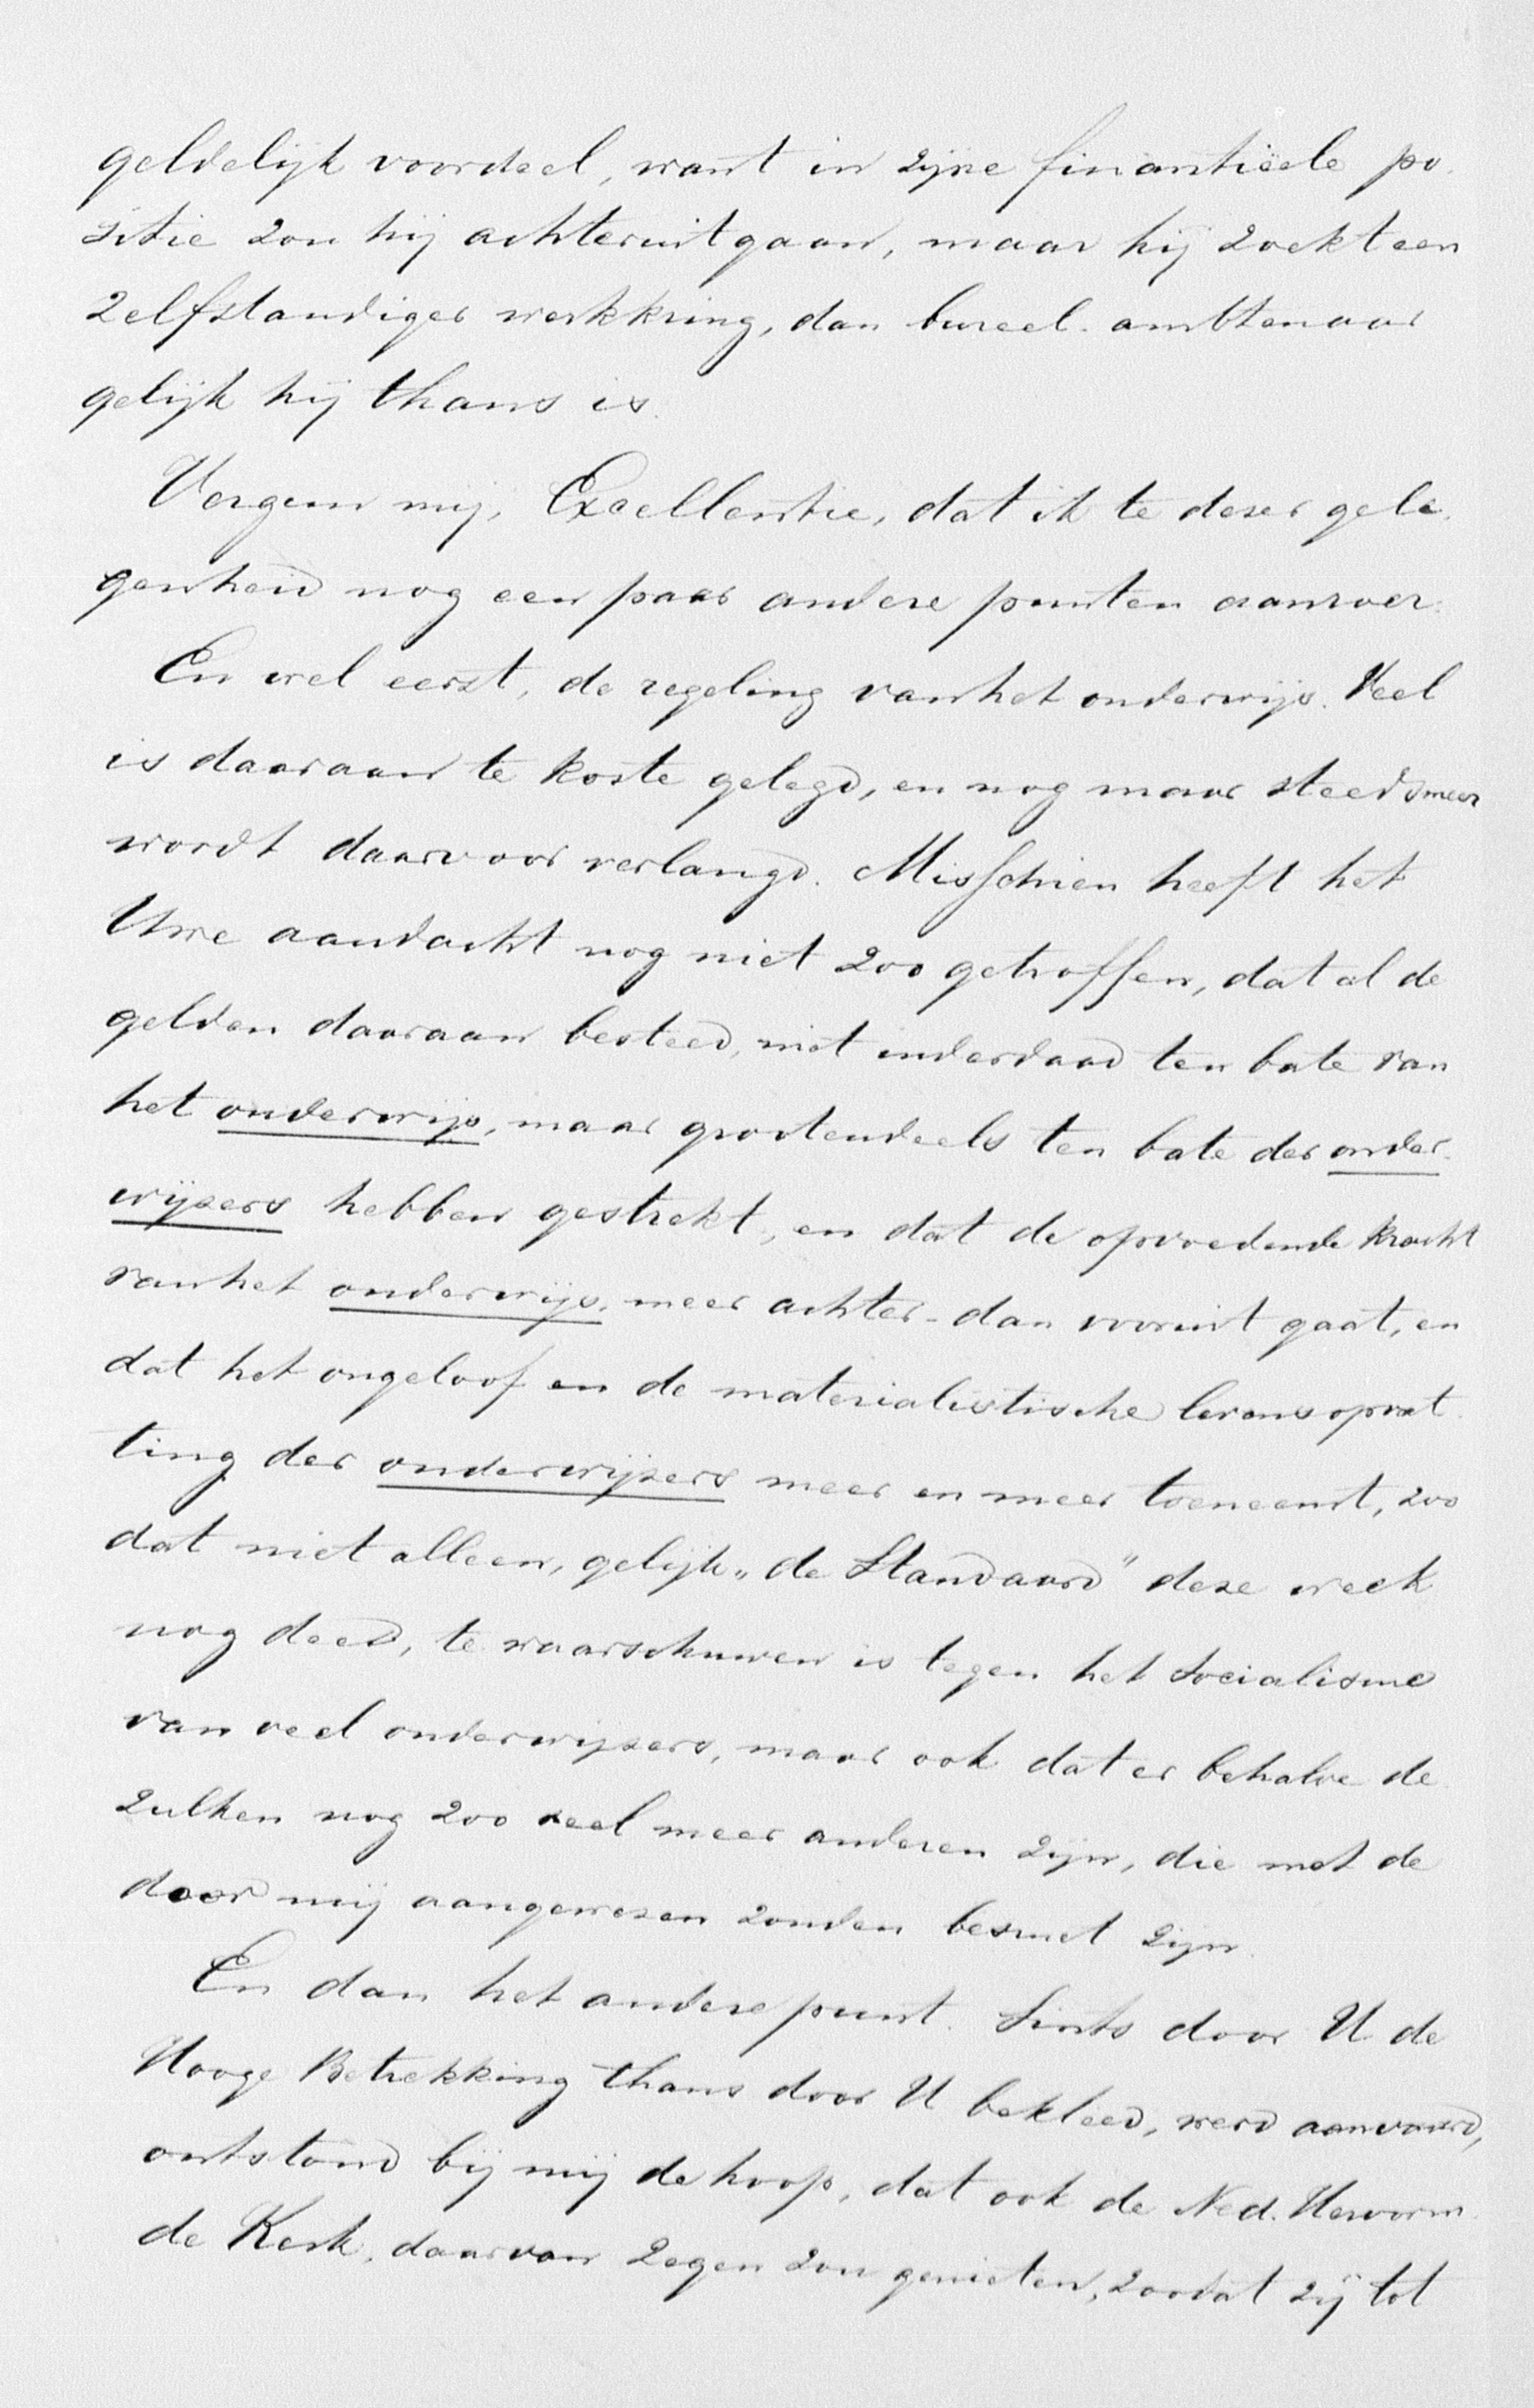 geldelijk voordeel, want in zijne finantiëele po-
sitie zou hij achteruitgaan, maar hij zoekt een
zelfstandiger werkkring, dan bureel-ambtenaar
gelijk hij thans is.
Vergun mij, Excellentie, dat ik te dezer gele-
genheid nog een paar andere punten aanroer.
En wel eerst, de regeling van het onderwijs. Veel
is daaraan te koste gelegd, en nog maar steeds meer
wordt daarvoor verlangd. Misschien heeft het
Uwe aandacht nog niet zoo getroffen, dat al de
gelden daaraan besteed, niet inderdaad ten bate van
het onderwijs, maar grootendeels ten bate der onder-
wijzers hebben gestrekt, en dat de opvoedende kracht
van het onderwijs, meer achter- dan vooruit gaat, en
dat het ongeloof en de materialistische levensopvat-
ting der onderwijzers meer en meer toeneemt, zoo
dat niet alleen, gelijk „de Standaard" deze week
nog deed, te waarschuwen is tegen het Socialisme
van veel onderwijzers, maar ook dat er behalve de-
zulken nog zoo veel meer anderen zijn, die met de
door mij aangewezen zonden besmet zijn.
En dan het andere punt. Sints door U de
Hooge Betrekking thans door U bekleed, werd aanvaard,
ontstond bij mij de hoop, dat ook de Ned. Hervorm-
de Kerk, daarvan zegen zou genieten, zoodat zij tot